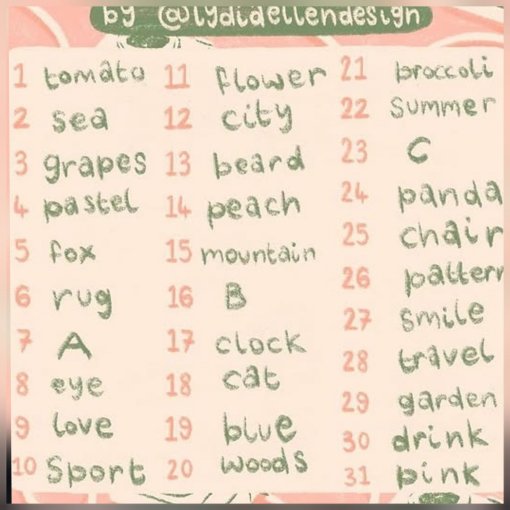 by @lydiaellendesign
1 tomato
2 sea
3 grapes
4 pastel
5 fox
6 rug
7 A
8 eye
9 love
10 Sport
11 flower
12 city
13 beard
14 peach
15 mountain
16 B
17 clock
18 cat
19 blue
20 woods
21 broccoli
22 summer
23 C
24 panda
25 chair
26 pattern
27 smile
28 travel
29 garden
30 drink
31 pink